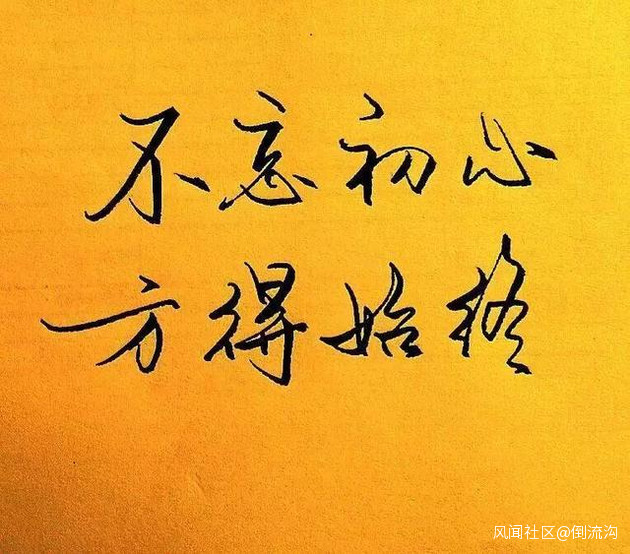 不忘初心
方得始终
风闻社区@倒流沟